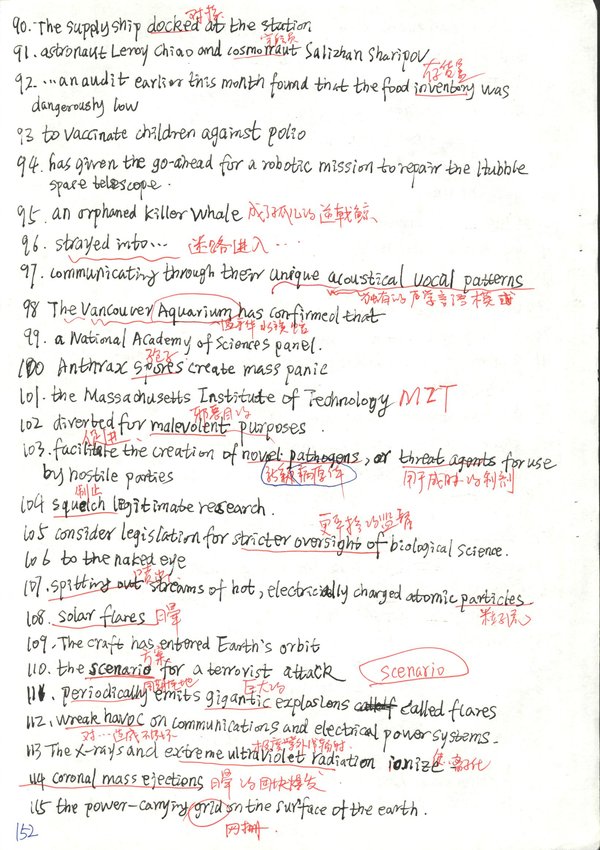 对接
90. The supply ship docked at the station.
宇航员
91. astronaut Leroy Chiao and cosmonaut Salizhan Sharipov
存货量
92. ...an audit earlier this month found that the food inventory was
dangerously low
93 to vaccinate children against polio
94. has given the go-ahead for a robotic mission to repair the Hubble
space telescope.
95. an orphaned killer whale 成了孤儿的逆戟鲸
96. strayed into... 迷路进入...
97. communicating through their unique acoustical vocal patterns
独有的声学言语模式
98 The Vancouver Aquarium has confirmed that
温哥华水族馆
99. a National Academy of Sciences panel.
孢子
100 Anthrax spores create mass panic
101. the Massachusetts Institute of Technology MIT
邪恶目的
102 diverted for malevolent purposes
促进
103. facilitate the creation of novel pathogens, or threat agents for use
by hostile parties 新颖病原体 用于威胁的制剂
制止
104 squelch legitimate research.
更严格的监督
105 consider legislation for stricter oversight of biological science.
106 to the naked eye
喷出
107. spitting out streams of hot, electrically charged atomic particles
粒子流
108. solar flares 日晕
109. The craft has entered Earth's orbit
方案
110. the scenario for a terrorist attack scenario
周期性地 巨大的
111. periodically emits gigantic explosions called flares
112. wreak havoc on communications and electrical power systems.
对...造成不好
113 The x-rays and extreme ultraviolet radiation ionize
114 coronal mass ejections 日晕的团块爆发
115 the power-carrying grid on the surface of the earth.
152 网栅